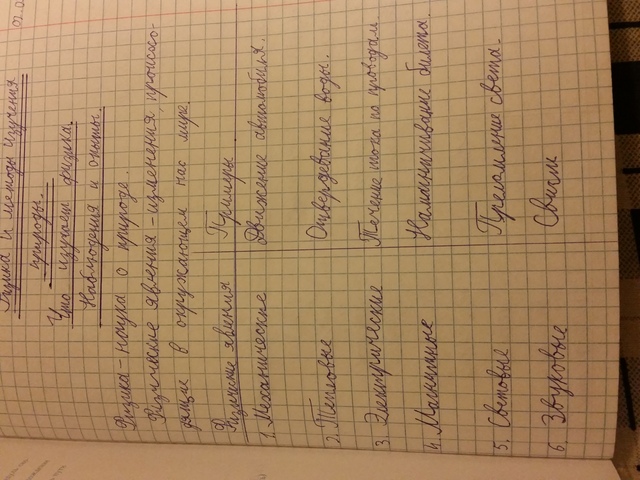 07.0
Физика и методы изучения
природы.
Что изучает физика.
Наблюдения и опыты.
Физика - наука о природе.
Физические явления - изменения, происхо-
дящие в окружающем нас мире
Физические явления Примеры
1. Механические Движение автомобиля.
2. Тепловые Отвердевание воды.
3. Электрические Течение тока по проводам
4. Магнитные Намагничивание билета.
5. Световые Преломление света.
6. Звуковые Свист